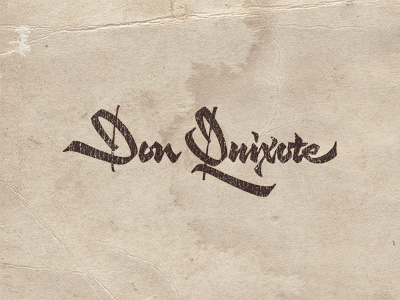 Don Quixote